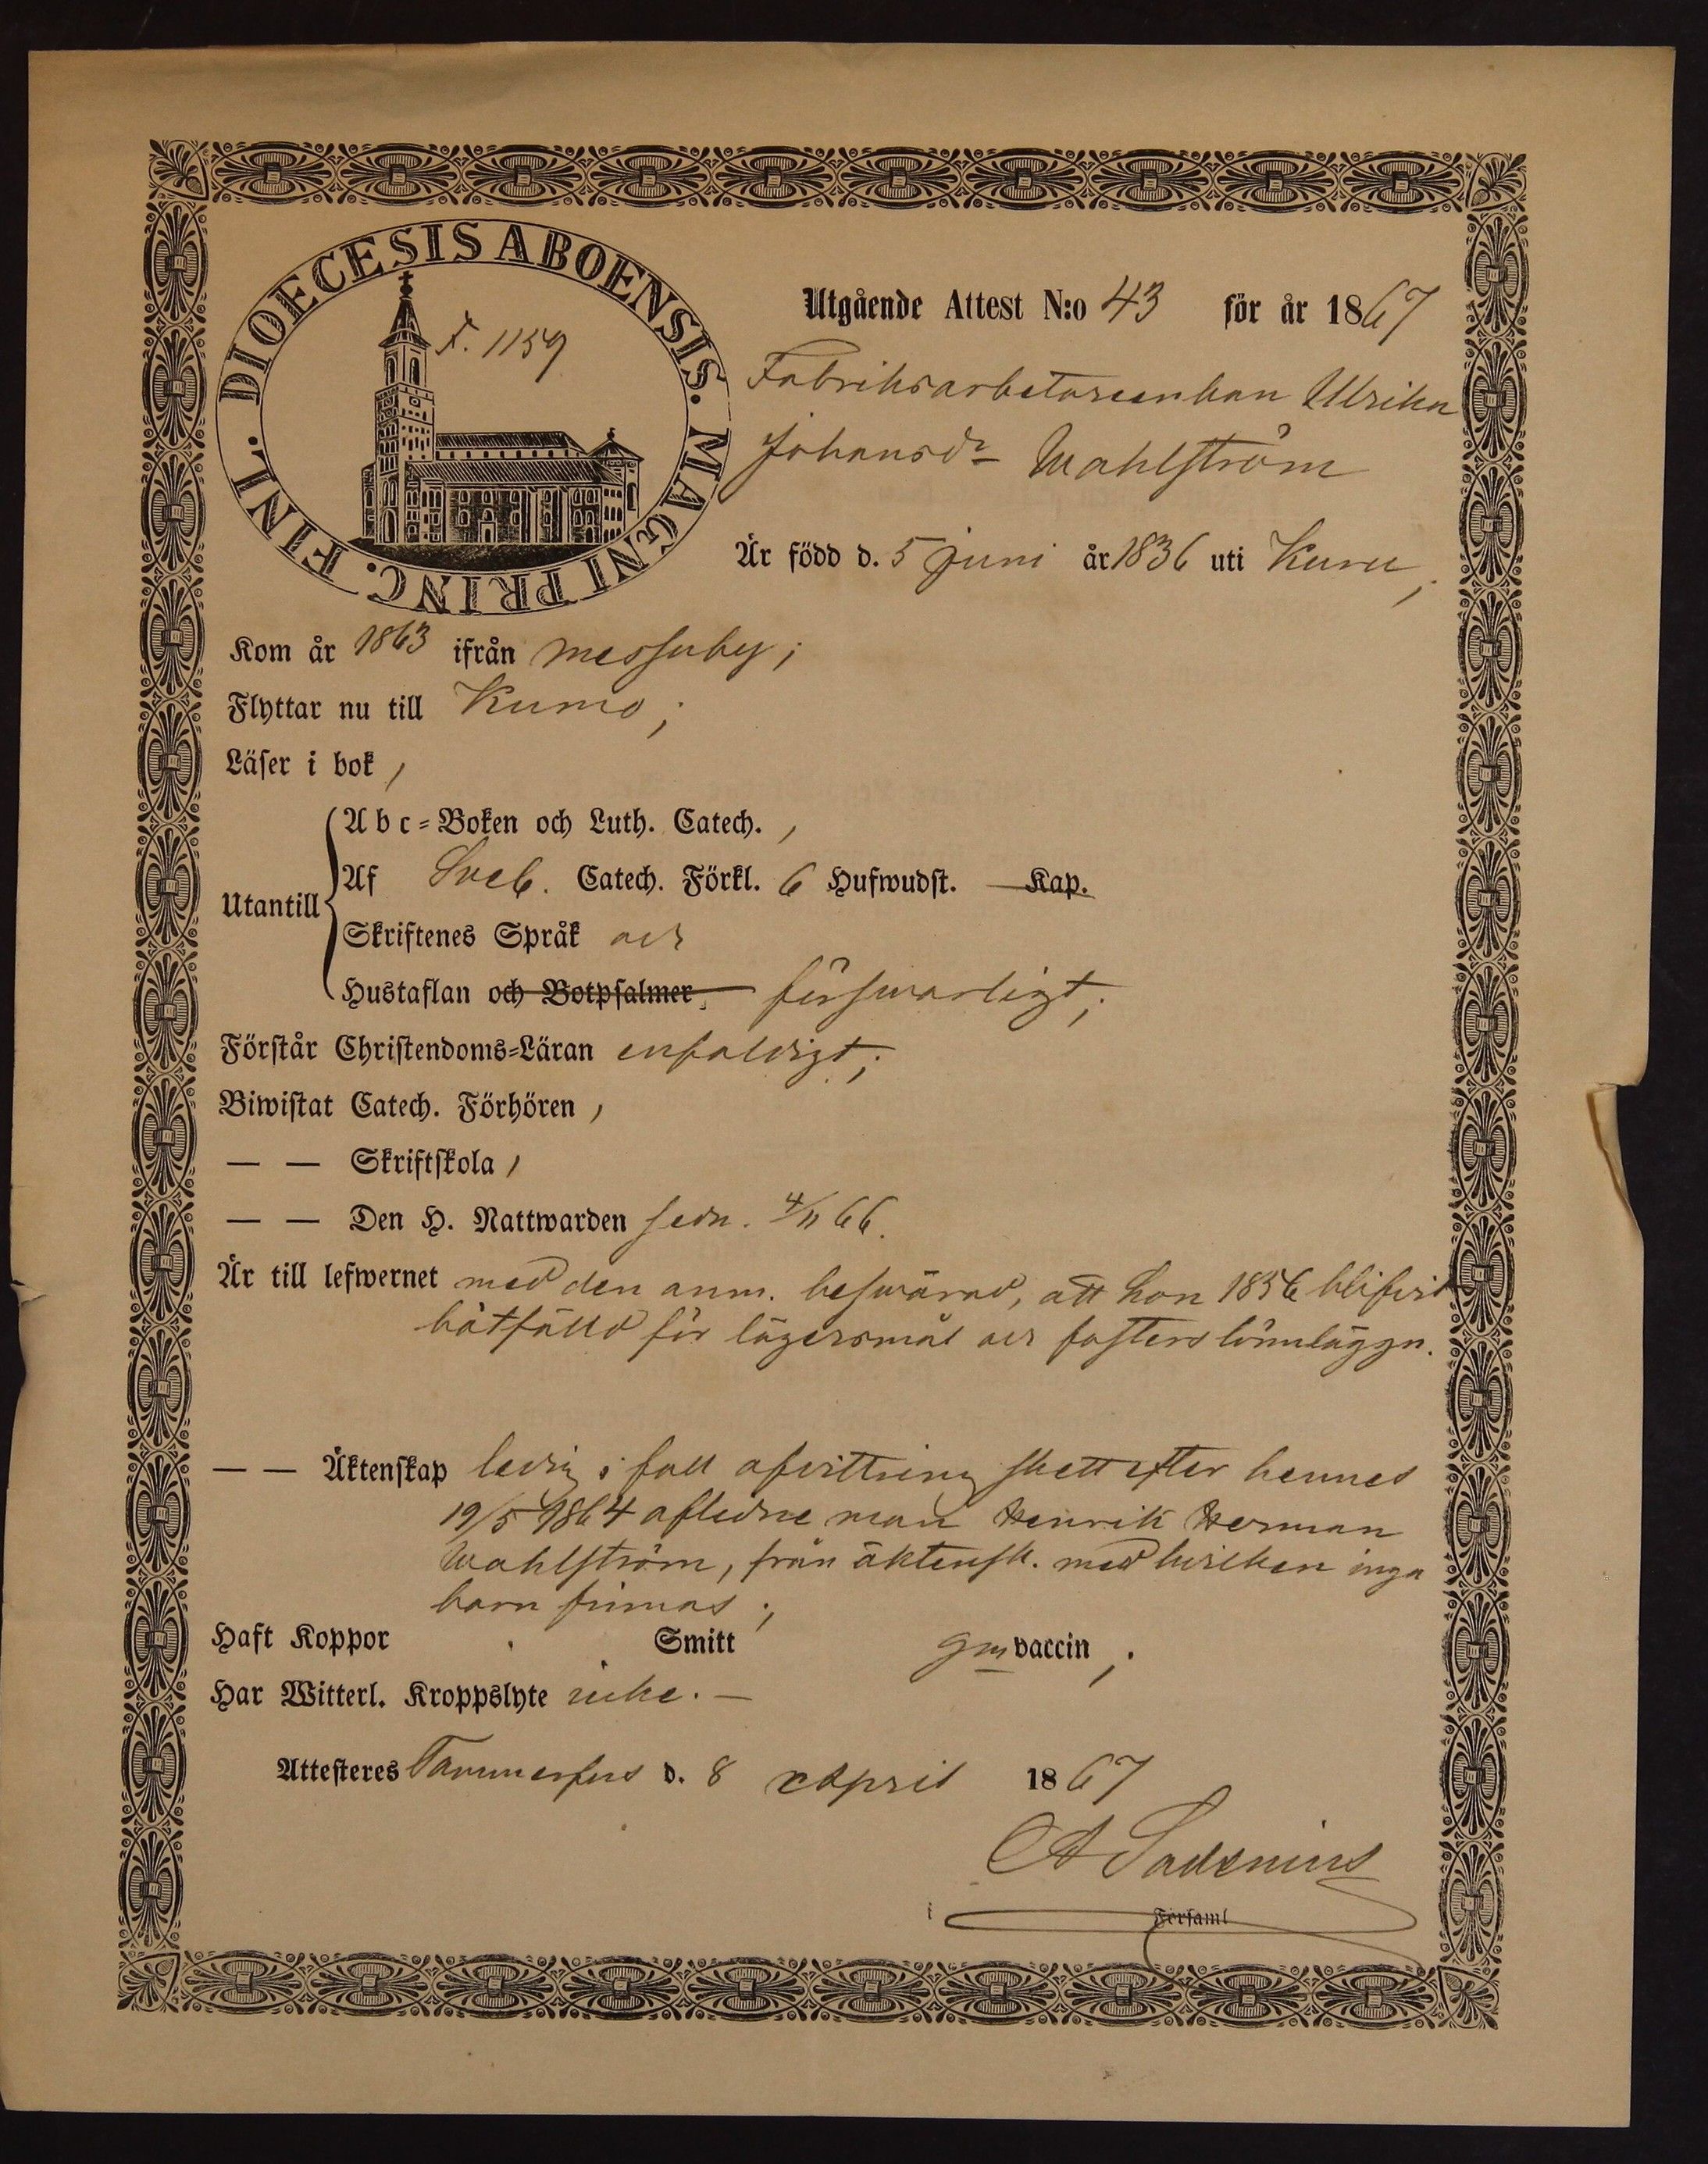 DIOECESIS ABOENSIS. MAGNI PRINC. FINL.
F. 1159
Utgående Attest N:o 43 för år 1867
Fabriksarbetareenkan Ulrika
Johansdr Wahlström
Är född d. 5 Juni år 1836 uti Kuru;
Kom år 1863 ifrån Messuby;
Flyttar nu till Kumo;
Läser i bok,
Utantill
Abc-Boken och Luth. Catech.,
Af Sveb. Catech. Förkl. 6 Hufwudst. Kap.
Skriftenes Språk och
Hustaflan och Botpsalmer, förswarligt;
Förstår Christendoms-Läran enfaldigt;
Biwistat Catech. Förhören,
— — Skriftskola,
— — Den H. Nattwarden sedn. 4/11 66.
Är till lefwernet med den anm. beswärad, att hon 1856 blifvit
bötfälld för lägersmål och fosters lönnläggn.
— — Äktenskap ledig i fall afvittring skett efter hennes
19/5 1864 aflidne man Henrik Herman
Wahlström, från äktensk. med hvilken inga
barn finnas;
Haft Koppor Smitt gm vaccin;
Har Witterl. Kroppslyte icke. —
Attesteres Tammerfors d. 8 April 1867
i Församl